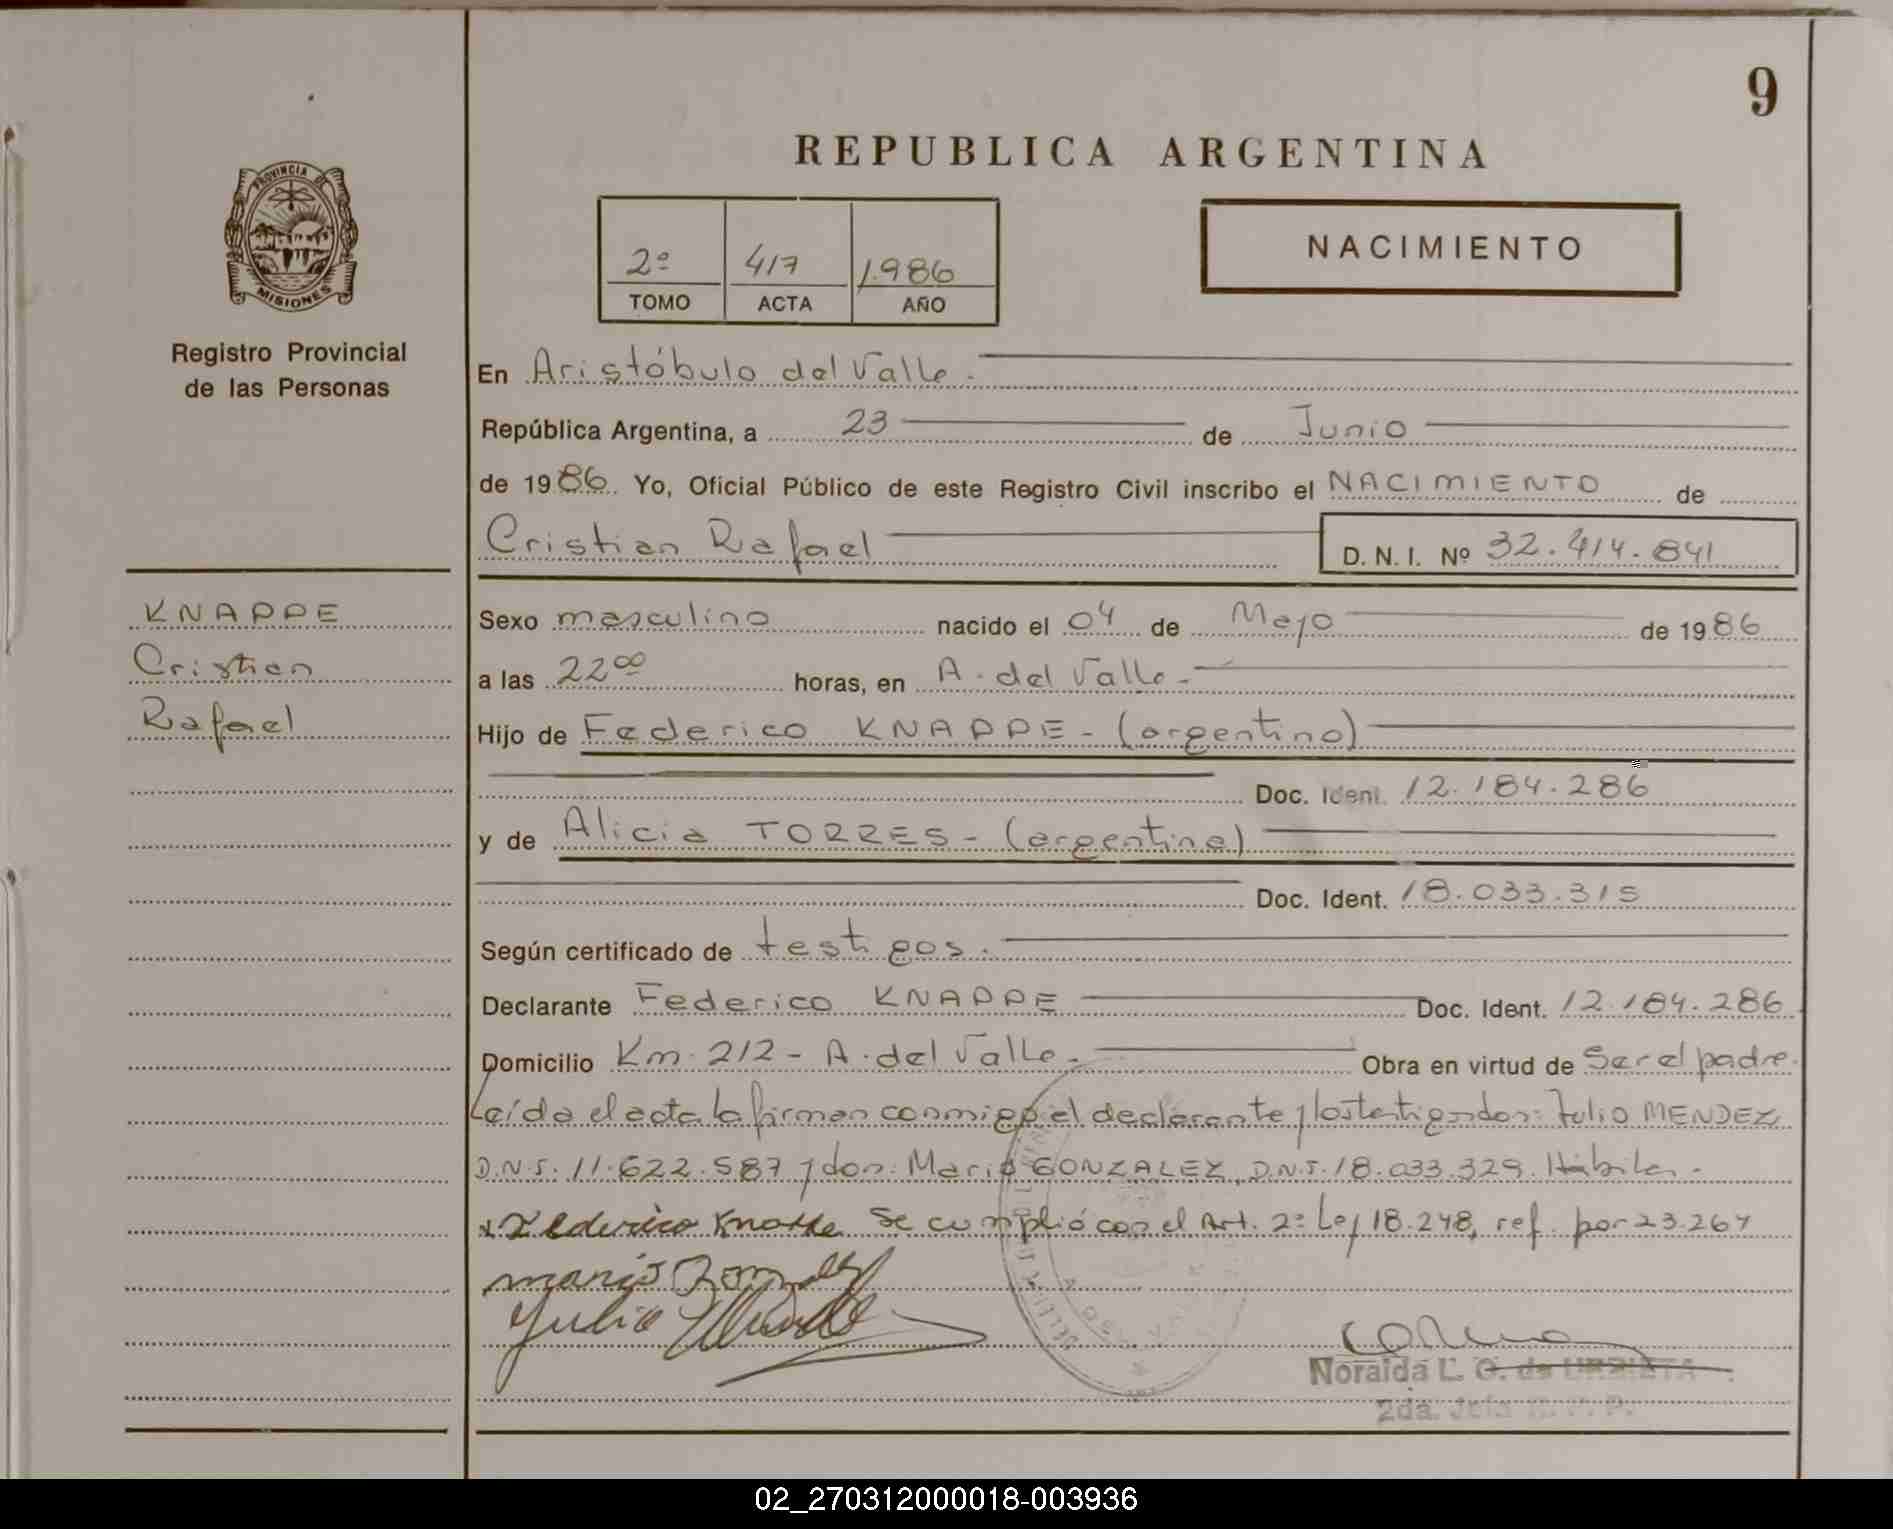 9
REPUBLICA ARGENTINA
PROVINCIA DE
MISIONES
Registro Provincial
de las Personas
2º 417 1.986
TOMO ACTA AÑO
NACIMIENTO
En Aristóbulo del Valle.
República Argentina, a 23 de Junio
de 1986. Yo, Oficial Público de este Registro Civil inscribo el NACIMIENTO de
Cristian Rafael D. N. I. Nº 32.414.841
KNAPPE
Cristian
Rafael
Sexo masculino nacido el 04 de Mayo de 1986
a las 22⁰⁰ horas, en A. del Valle.-
Hijo de Federico KNAPPE - (argentino)
Doc. Ident. 12.184.286
y de Alicia TORRES - (argentina)
Doc. Ident. 18.033.315
Según certificado de testigos.
Declarante Federico KNAPPE Doc. Ident. 12.184.286
Domicilio Km. 212 - A. del Valle.- Obra en virtud de Ser el padre.
Leída el acta la firman conmigo el declarante y los testigos don: Julio MENDEZ
D.N.I. 11.622.587 y don: Mario GONZALEZ, D.N.I. 18.033.329. Hábiles.-
x Federico Knappe Se cumplió con el Art. 2º Ley 18.248, ref. por 23.264
mario Gonzalez
Julio
Noralda L. G. de URRIETA
2da. Jefa R. P. P.
02_270312000018-003936